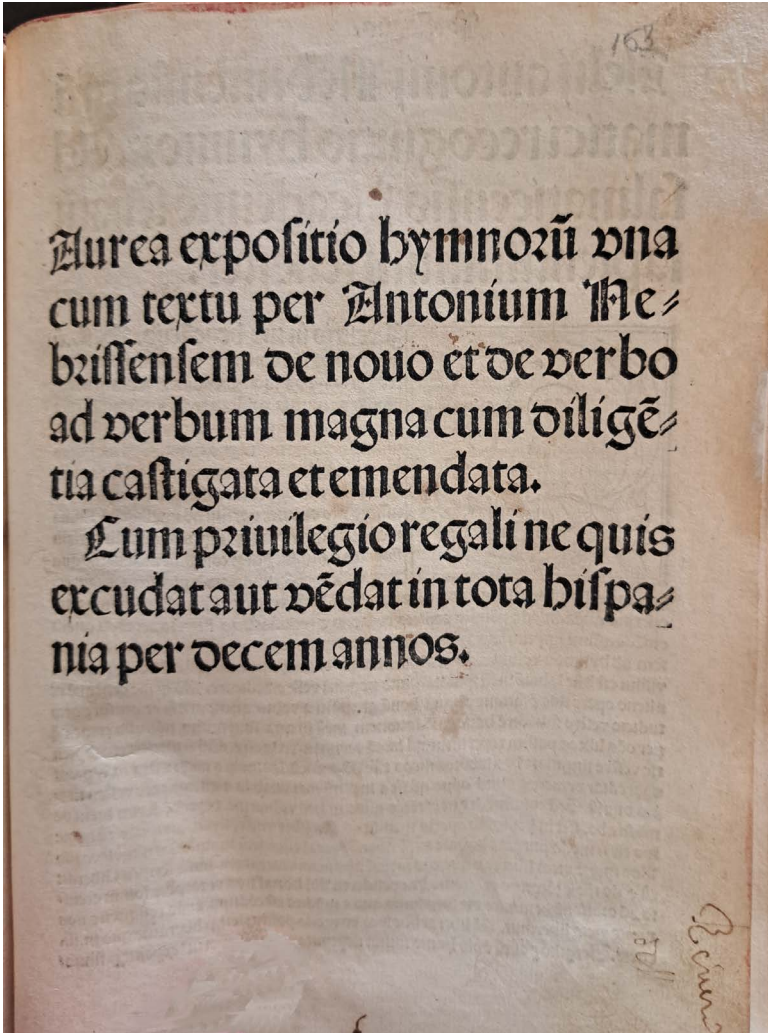 163
Aurea expoſitio hymnorū vna
cum textu per Antonium Ne⸗
briſſenſem de nouo et de verbo
ad verbum magna cum diligē⸗
tia caſtigata et emendata.
Cum priuilegio regali ne quis
excudat aut vēdat in tota hiſpa⸗
nia per decem annos.